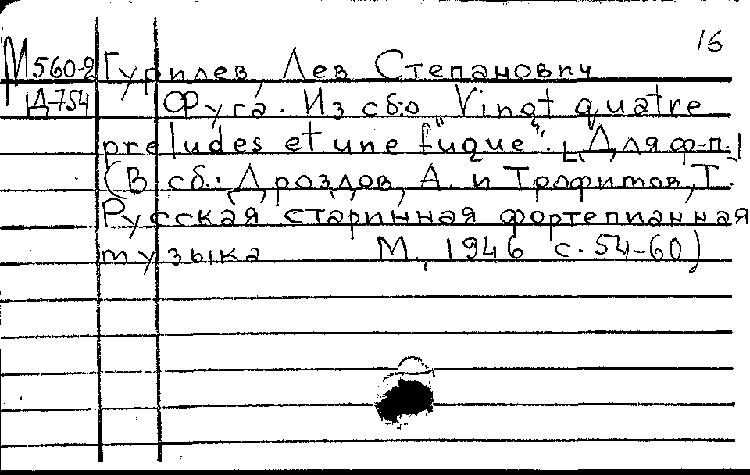 16
М 560-2 Гурилев, Лев Степанович
Д-754 Фуга. Из сб.: "Vingt quatre
preludes et une fuque". [Для ф-п.]
(В сб.: Дроздов, А. и Трофимов, Т.
Русская старинная фортепианная
музыка М., 1946 с. 54-60)